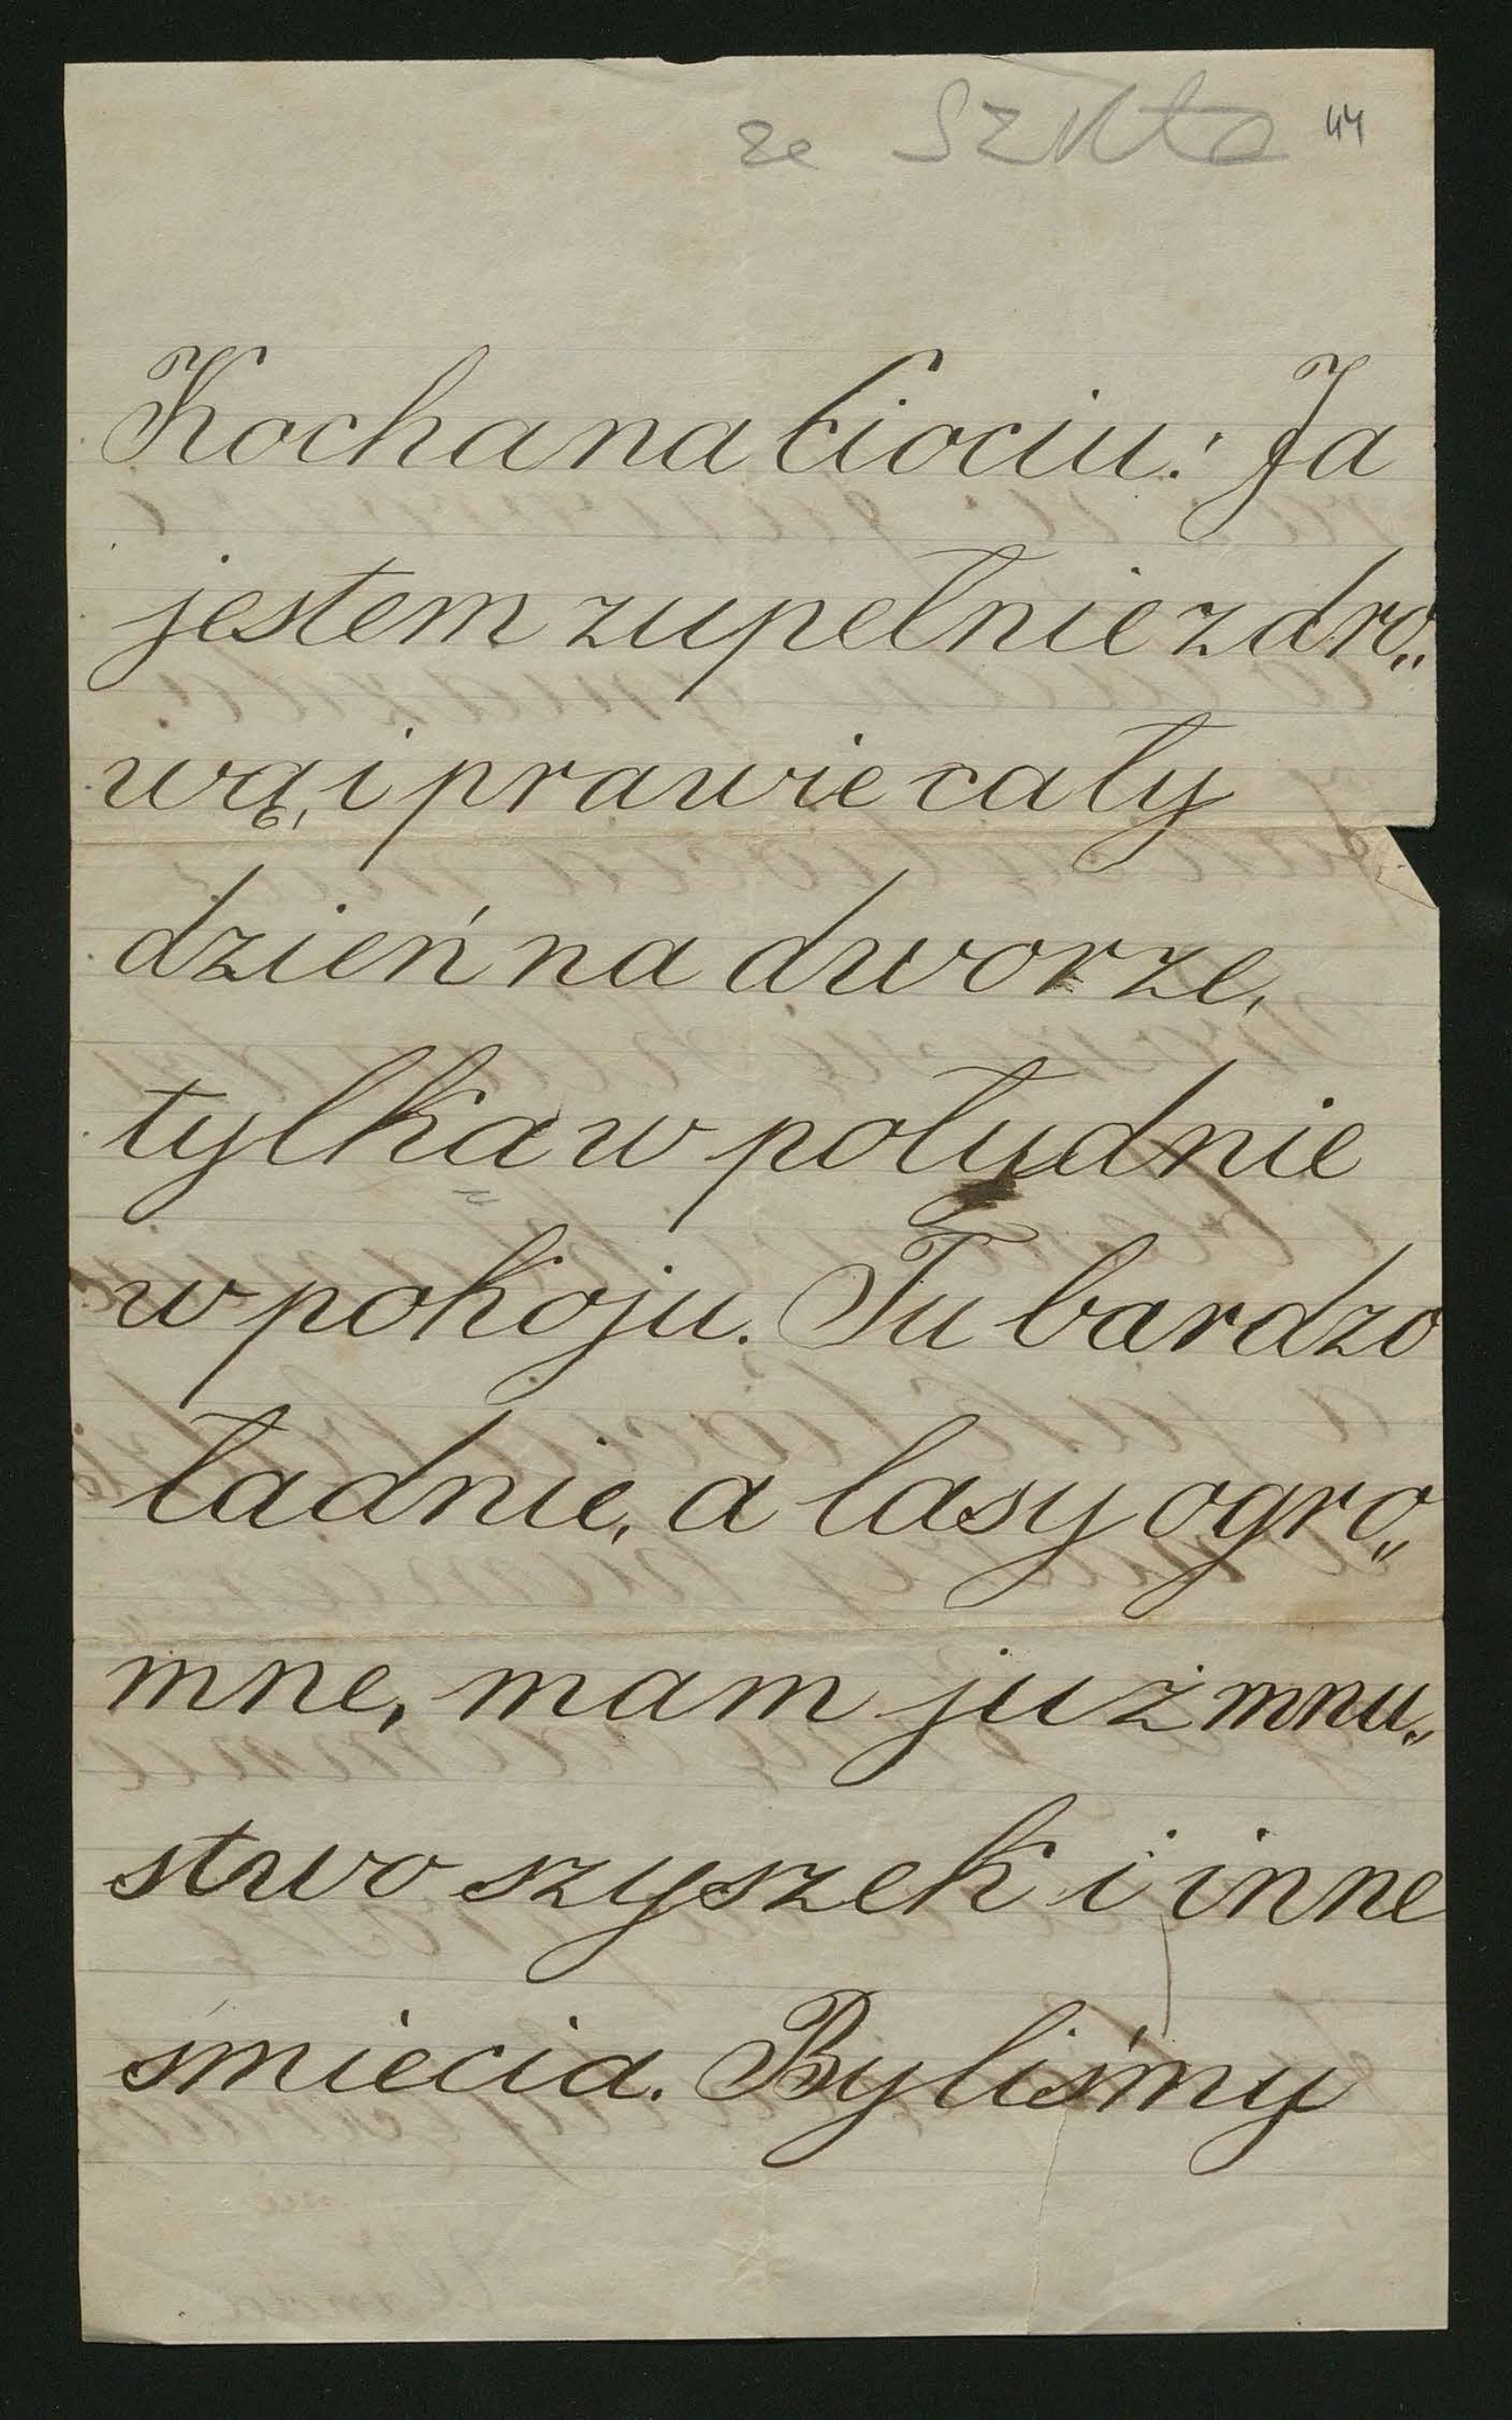 ze Szkla 44
Kochana Ciociu! Ja
jestem zupełnie zdro„
wą, i prawie cały
dzień na dworze,
tylka w południe
w pokoju. Tu bardzo
ładnie, a lasy ogro„
mne, mam już mnu„
stwo szyszek i inne
śmiecia. Byliśmy